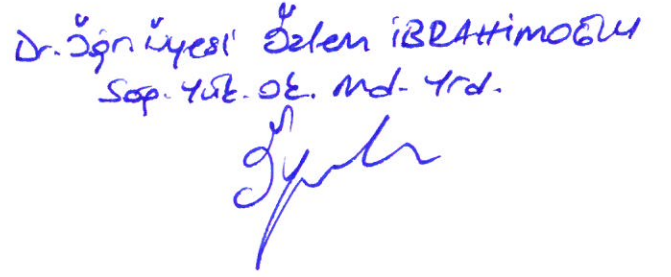 Dr. Öğr. üyesi Özlem İBRAHİMOĞLU
Sağ. Yük. Ok. Md. Yrd.